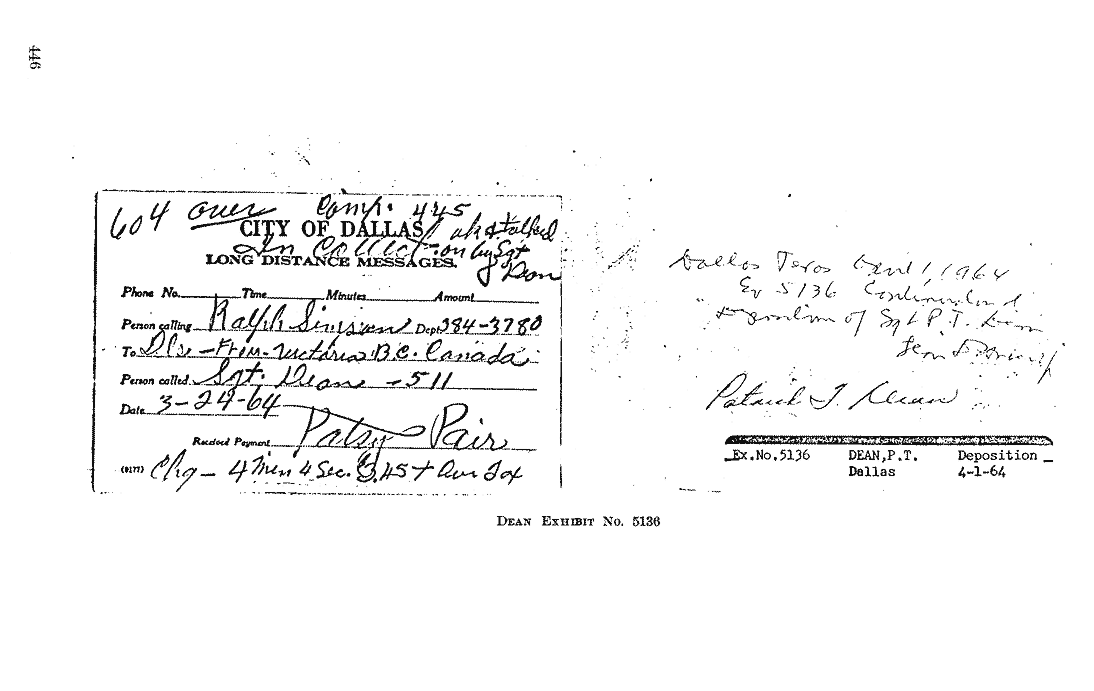 446
604 over Comp. 445
CITY OF DALLAS ok & talked
on by Sgt
LONG DISTANCE MESSAGES. Dean
Phone No. Time Minutes Amount
Person calling Ralph Simpson Dept 384-3780
To Dls - From - Victoria B.C. Canada
Person called Sgt. Dean - 511
Date 3-24-64
Received Payment Patsy Pair
Chg - 4 Min 4 Sec. 3.45 + Our Tax
Dallas Texas April 1, 1964
Ex 5136
of Sgt P.T. Dean
Patrick T. Dean
Ex.No.5136 DEAN,P.T. Deposition
Dallas 4-1-64
DEAN EXHIBIT No. 5136